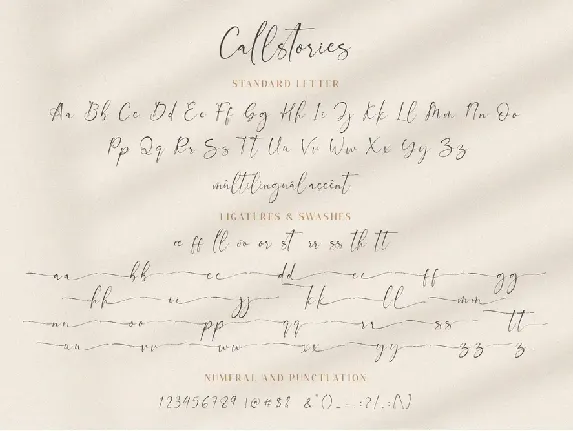 Callstories
STANDARD LETTER
Aa Bb Cc Dd Ee Ff Gg Hh Ii Jj Kk Ll Mm Nn Oo
Pp Qq Rr Ss Tt Uu Vv Ww Xx Yy Zz
multilingual accent
LIGATURES & SWASHES
ee ff ll oo or st rr ss th tt
aa bb cc dd ee ff gg
hh ii jj kk ll mm
nn oo pp qq rr ss tt
uu vv ww xx yy zz z
NUMERAL AND PUNCTUATION
123456789 !@#$